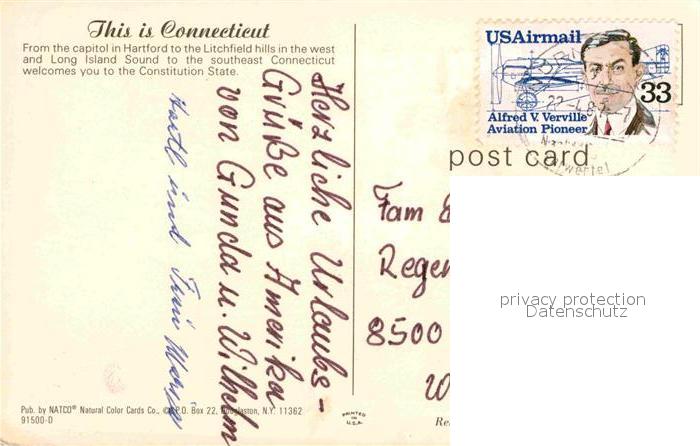 This is Connecticut
From the capitol in Hartford to the Litchfield hills in the west
and Long Island Sound to the southeast Connecticut
welcomes you to the Constitution State.
Herzliche Urlaubs-
Grüße aus Amerika
von Gunda u. Wilhelm
Hartl und
USAirmail
33
Alfred V. Verville
Aviation Pioneer
post card
Fam
Regen
8500
privacy protection
Datenschutz
Pub. by NATCO® Natural Color Cards Co., P.O. Box 22, Douglaston, N.Y. 11362
91500-D
PRINTED
IN
U.S.A.
Re